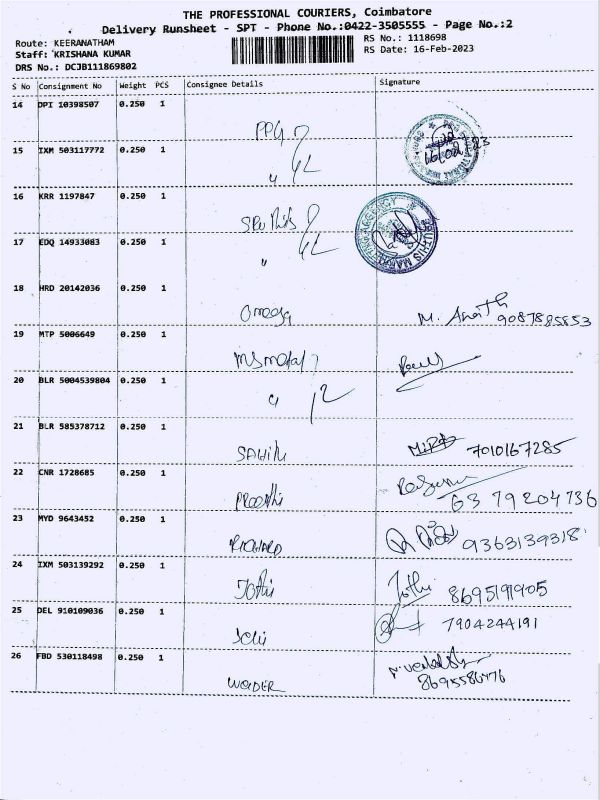 THE PROFESSIONAL COURIERS, Coimbatore
Delivery Runsheet - SPT - Phone No.:0422-3505555 - Page No.:2
Route: KEERANATHAM RS No.: 1118698
Staff: KRISHANA KUMAR RS Date: 16-Feb-2023
DRS No.: DCJB111869802
S No Consignment No Weight PCS Consignee Details Signature
14 DPI 10398507 0.250 1 PPG
15 IXM 503117772 0.250 1 "
16 KRR 1197847 0.250 1
17 EDQ 14933083 0.250 1 "
18 HRD 20142036 0.250 1 Omega M. 9087885853
19 MTP 5006649 0.250 1
20 BLR 5004539804 0.250 1 "
21 BLR 585378712 0.250 1 SAHiti 7010167285
22 CNR 1728685 0.250 1 63 79204736
23 MYD 9643452 0.250 1 RICHARD 9363139318
24 IXM 503139292 0.250 1 Jothi Jothi 8695191905
25 DEL 910109036 0.250 1 7904244191
26 FBD 530118498 0.250 1 WONDER